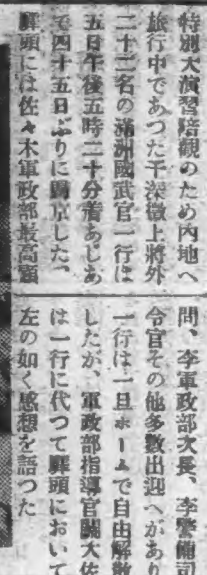 特別大演習陪観のため内地へ
旅行中であつた于深澂上將外
二十二名の滿洲國武官一行は
五日午後五時二十分着あじあ
で四十五日ぶりに歸京した、
驛頭には佐々木軍政部最高顧
問、李軍政部次長、李警備司
令官その他多數出迎へがあり
一行は一旦ホームで自由解散
したが、軍政部指導官關大佐
は一行に代つて驛頭において
左の如く感想を語つた